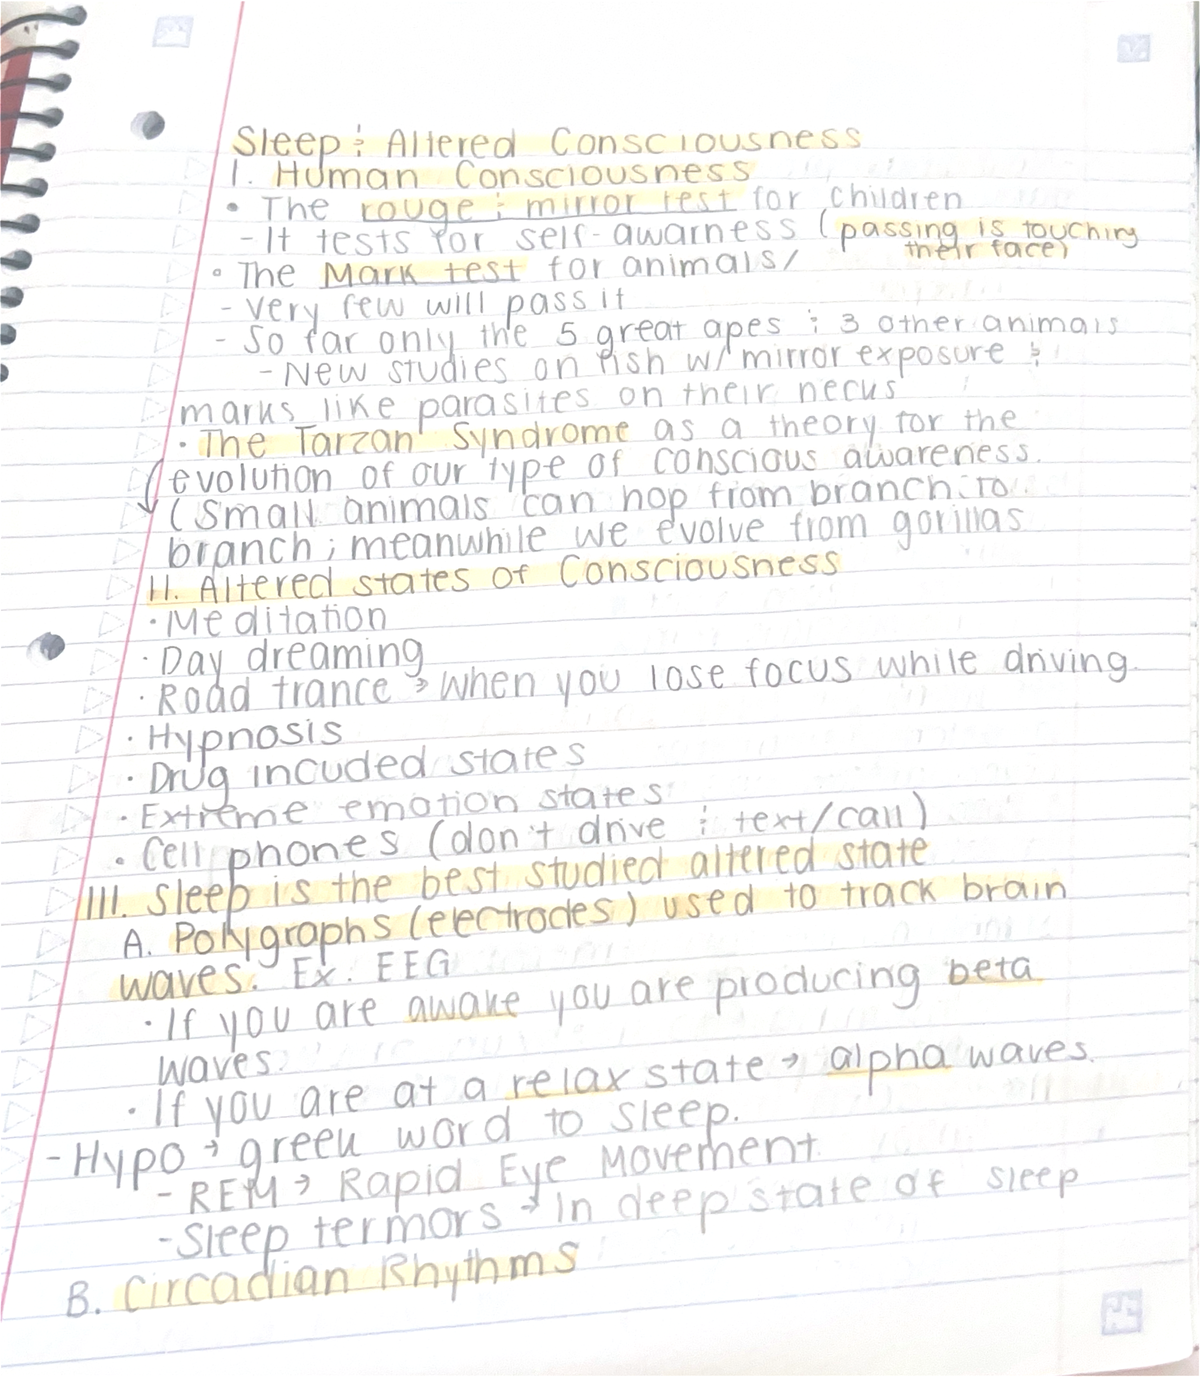 Sleep & Altered Consciousness
I. Human Consciousness
• The rouge & mirror test for children
- It tests for self-awarness (passing is touching
their face)
• The Mark test for animals/
- very few will pass it
- So far only the 5 great apes & 3 other animals
- New studies on fish w/ mirror exposure &
marks like parasites on their necks
• The Tarzan Syndrome as a theory for the
evolution of our type of conscious awareness.
(Small animals can hop from branch to
branch; meanwhile we evolve from gorillas
II. Altered states of Consciousness
• Meditation
• Day dreaming
• Road trance → when you lose focus while driving
• Hypnosis
• Drug incuded states
• Extreme emotion states
• Cell phones (don't drive & text/call)
III. Sleep is the best studied altered state
A. Polygraphs (electrodes) used to track brain
waves. Ex: EEG
• If you are awake you are producing beta
waves.
• If you are at a relax state → alpha waves.
- Hypo → greek word to sleep.
- REM → Rapid Eye Movement
- Sleep termors → in deep state of sleep
B. Circadian Rhythms